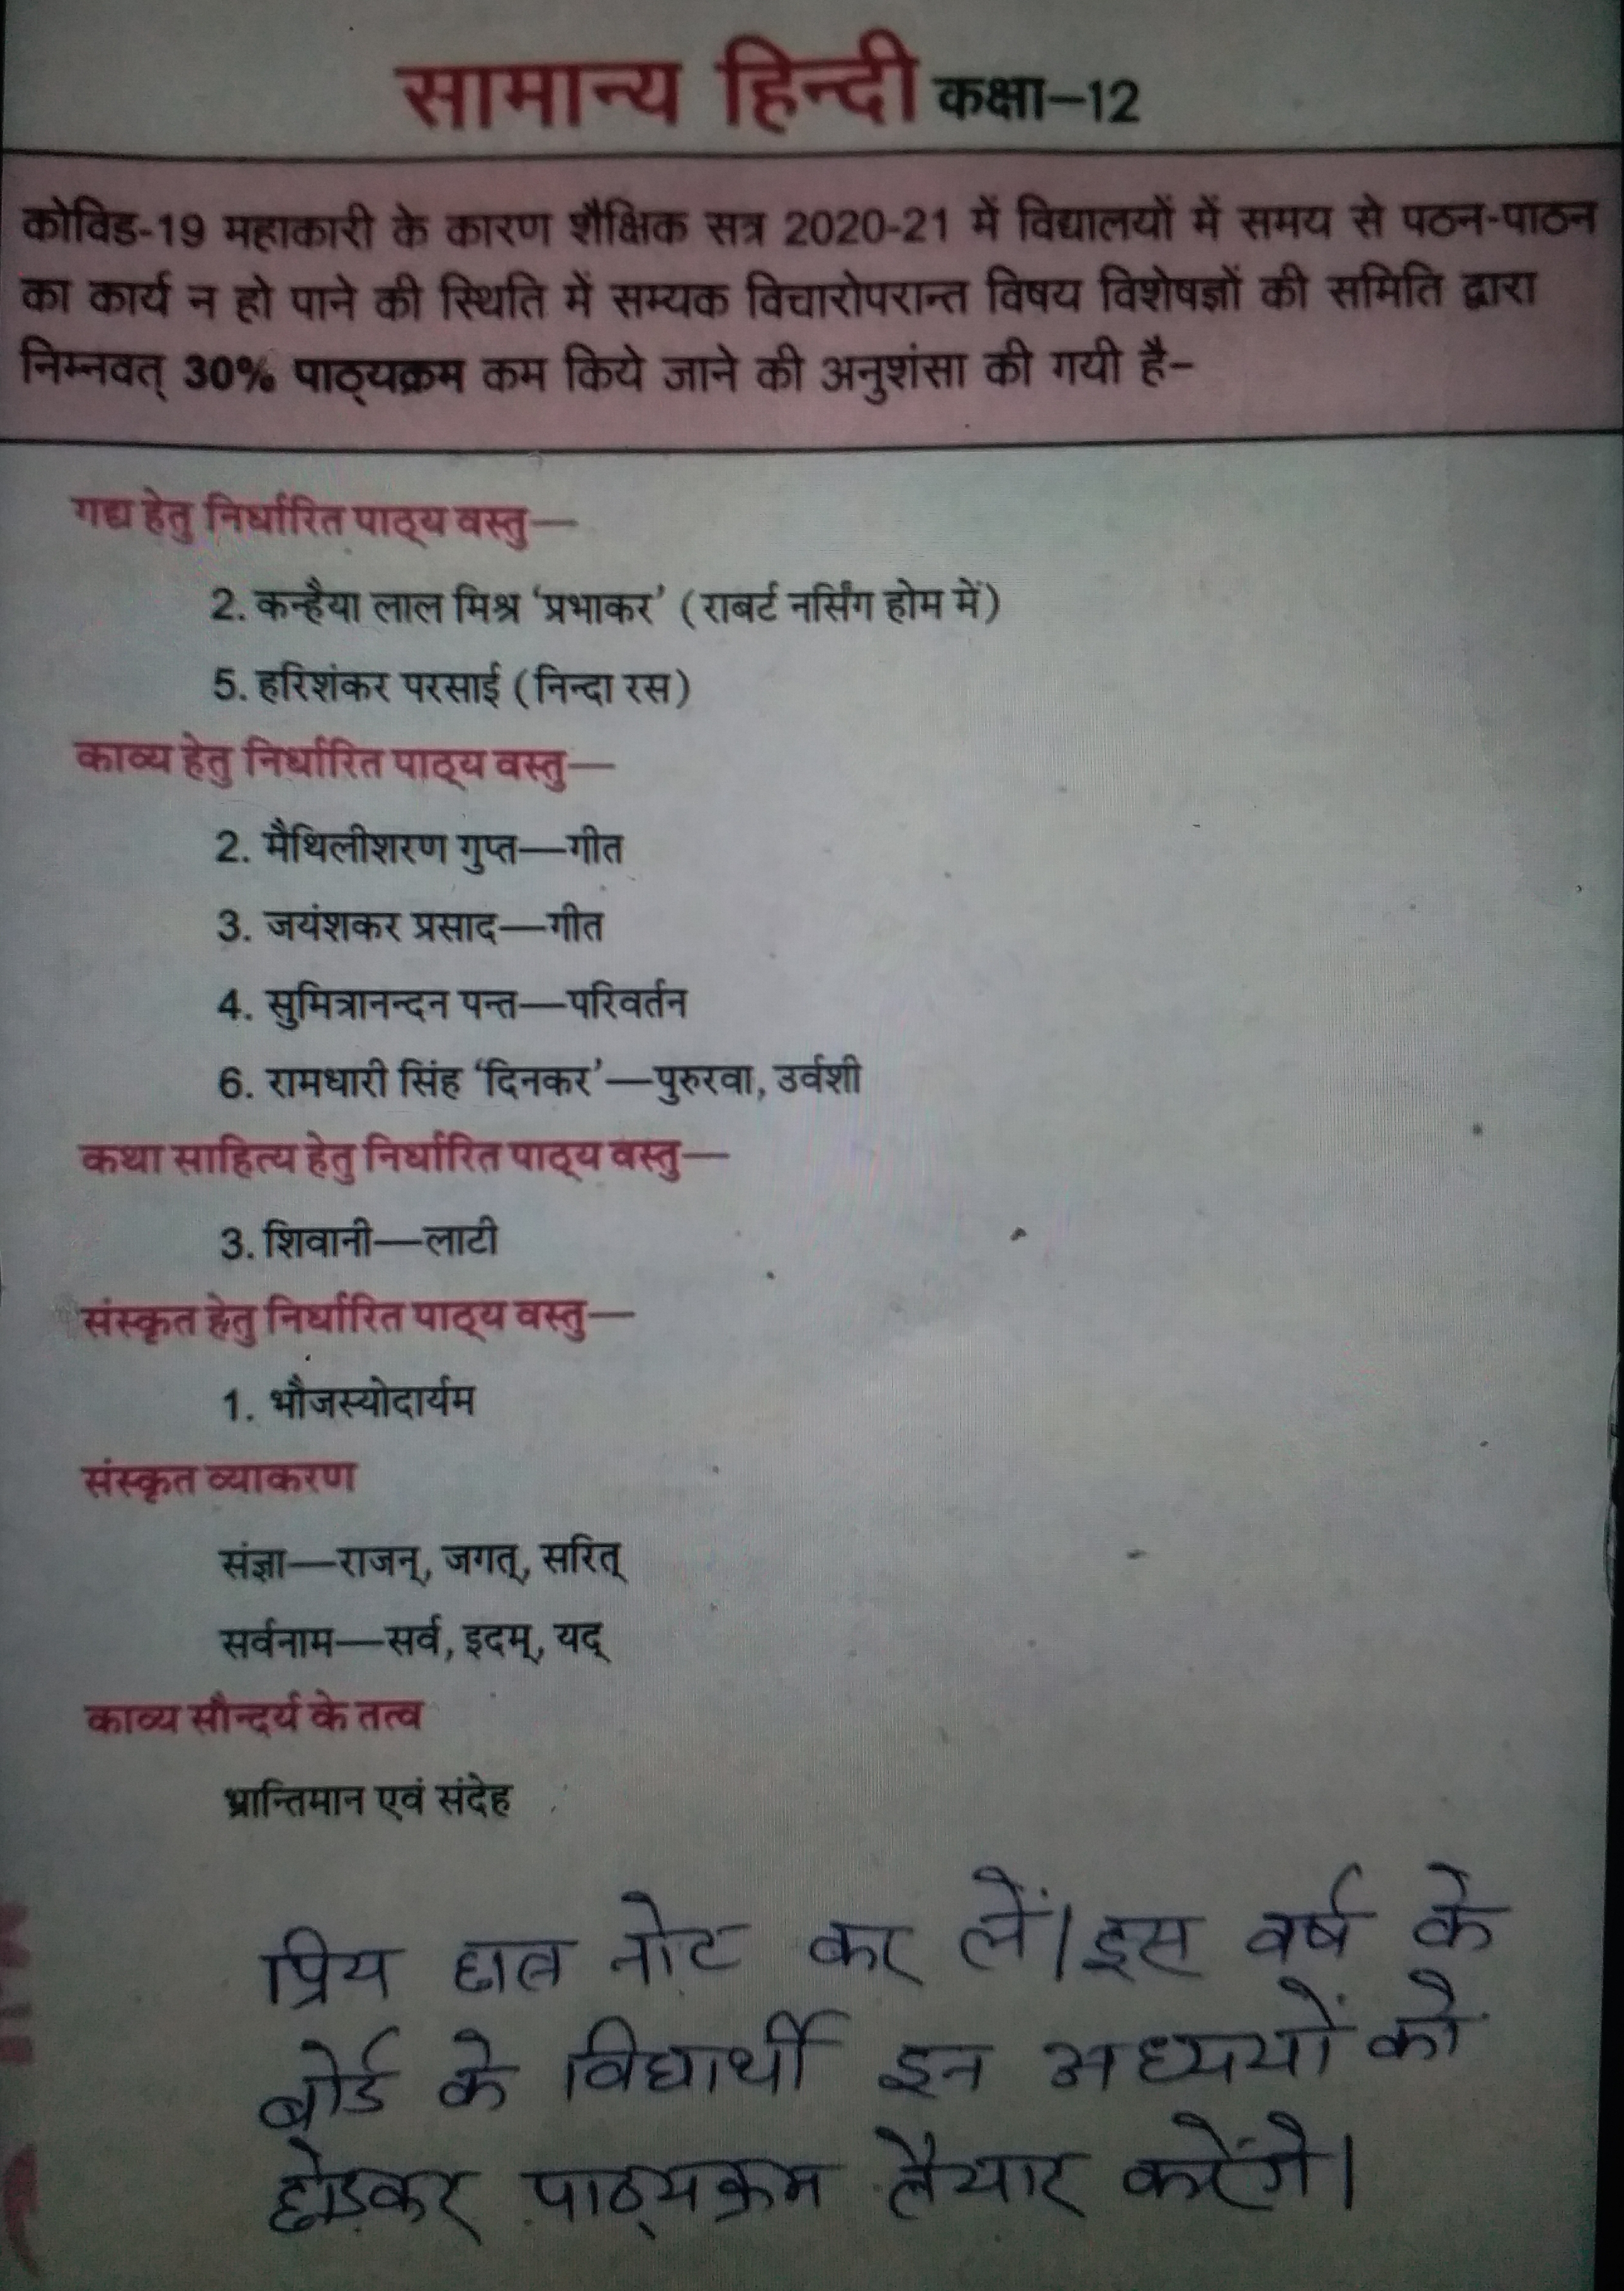 सामान्य हिन्दी कक्षा–12
कोविड-19 महाकारी के कारण शैक्षिक सत्र 2020-21 में विद्यालयों में समय से पठन-पाठन
का कार्य न हो पाने की स्थिति में सम्यक विचारोपरान्त विषय विशेषज्ञों की समिति द्वारा
निम्नवत् 30% पाठ्यक्रम कम किये जाने की अनुशंसा की गयी है–
गद्य हेतु निर्धारित पाठ्य वस्तु—
2. कन्हैया लाल मिश्र ‘प्रभाकर’ (राबर्ट नर्सिंग होम में)
5. हरिशंकर परसाई (निन्दा रस)
काव्य हेतु निर्धारित पाठ्य वस्तु—
2. मैथिलीशरण गुप्त—गीत
3. जयंशकर प्रसाद—गीत
4. सुमित्रानन्दन पन्त—परिवर्तन
6. रामधारी सिंह ‘दिनकर’—पुरुरवा, उर्वशी
कथा साहित्य हेतु निर्धारित पाठ्य वस्तु—
3. शिवानी—लाटी
संस्कृत हेतु निर्धारित पाठ्य वस्तु—
1. भौजस्योदार्यम
संस्कृत व्याकरण
संज्ञा—राजन्, जगत्, सरित्
सर्वनाम—सर्व, इदम्, यद्
काव्य सौन्दर्य के तत्व
भ्रान्तिमान एवं संदेह
प्रिय छात्र नोट कर लें। इस वर्ष के
बोर्ड के विद्यार्थी इन अध्ययों को
छोडकर पाठ्यक्रम तैयार करेंगे।